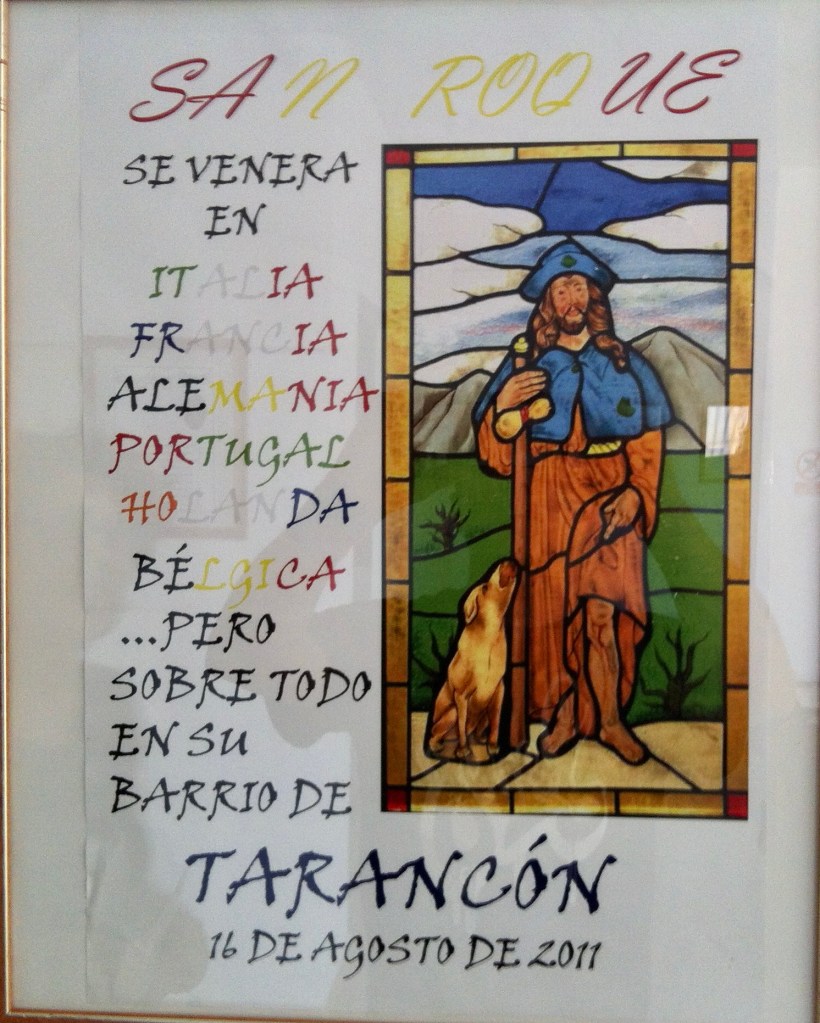 SAN ROQUE
SE VENERA
EN
ITALIA
FRANCIA
ALEMANIA
PORTUGAL
HOLANDA
BÉLGICA
...PERO
SOBRE TODO
EN SU
BARRIO DE
TARANCÓN
16 DE AGOSTO DE 2011